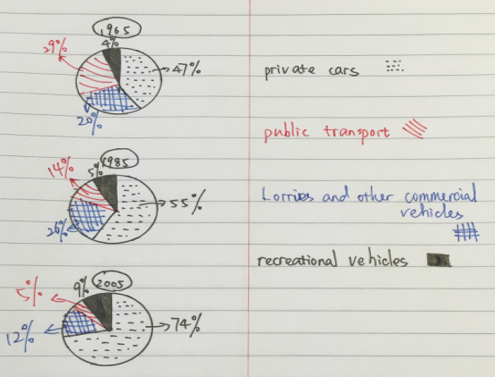 1965
4%
29%
47%
20%
private cars
public transport
1985
5%
14%
55%
26%
Lorries and other commercial
vehicles
recreational vehicles
2005
9%
5%
74%
12%